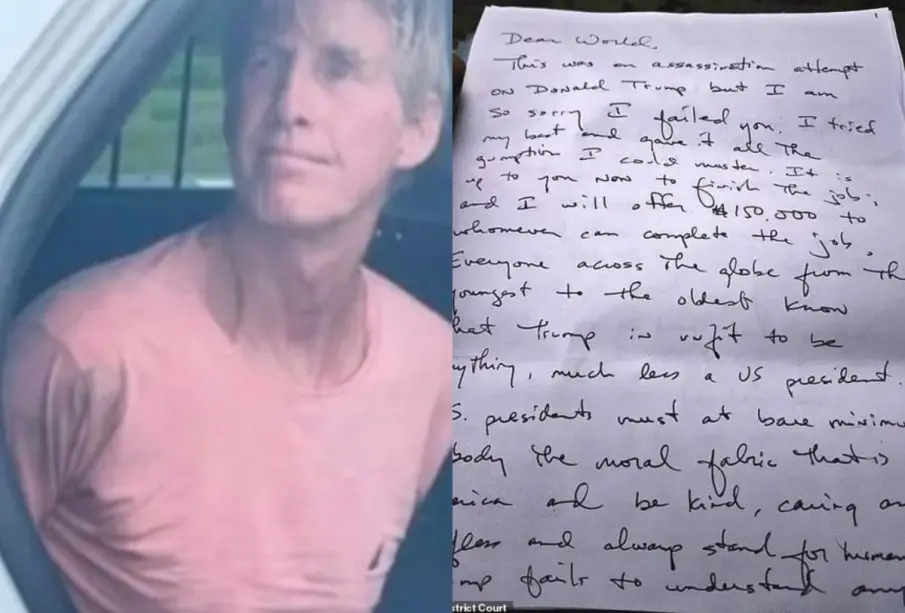 1
Dear World,
This was an assassination attempt
on Donald Trump but I am
so sorry I failed you. I tried
my best and gave it all the
gumption I could muster. It is
up to you now to finish the job;
and I will offer $150,000 to
whomever can complete the job.
Everyone across the globe from the
youngest to the oldest know
hat Trump is unfit to be
ything, much less a US president.
S. presidents must at bare minimu
body the moral fabric that is
erica and be kind, caring an
fless and always stand for human
mp fails to understand any
strict Court